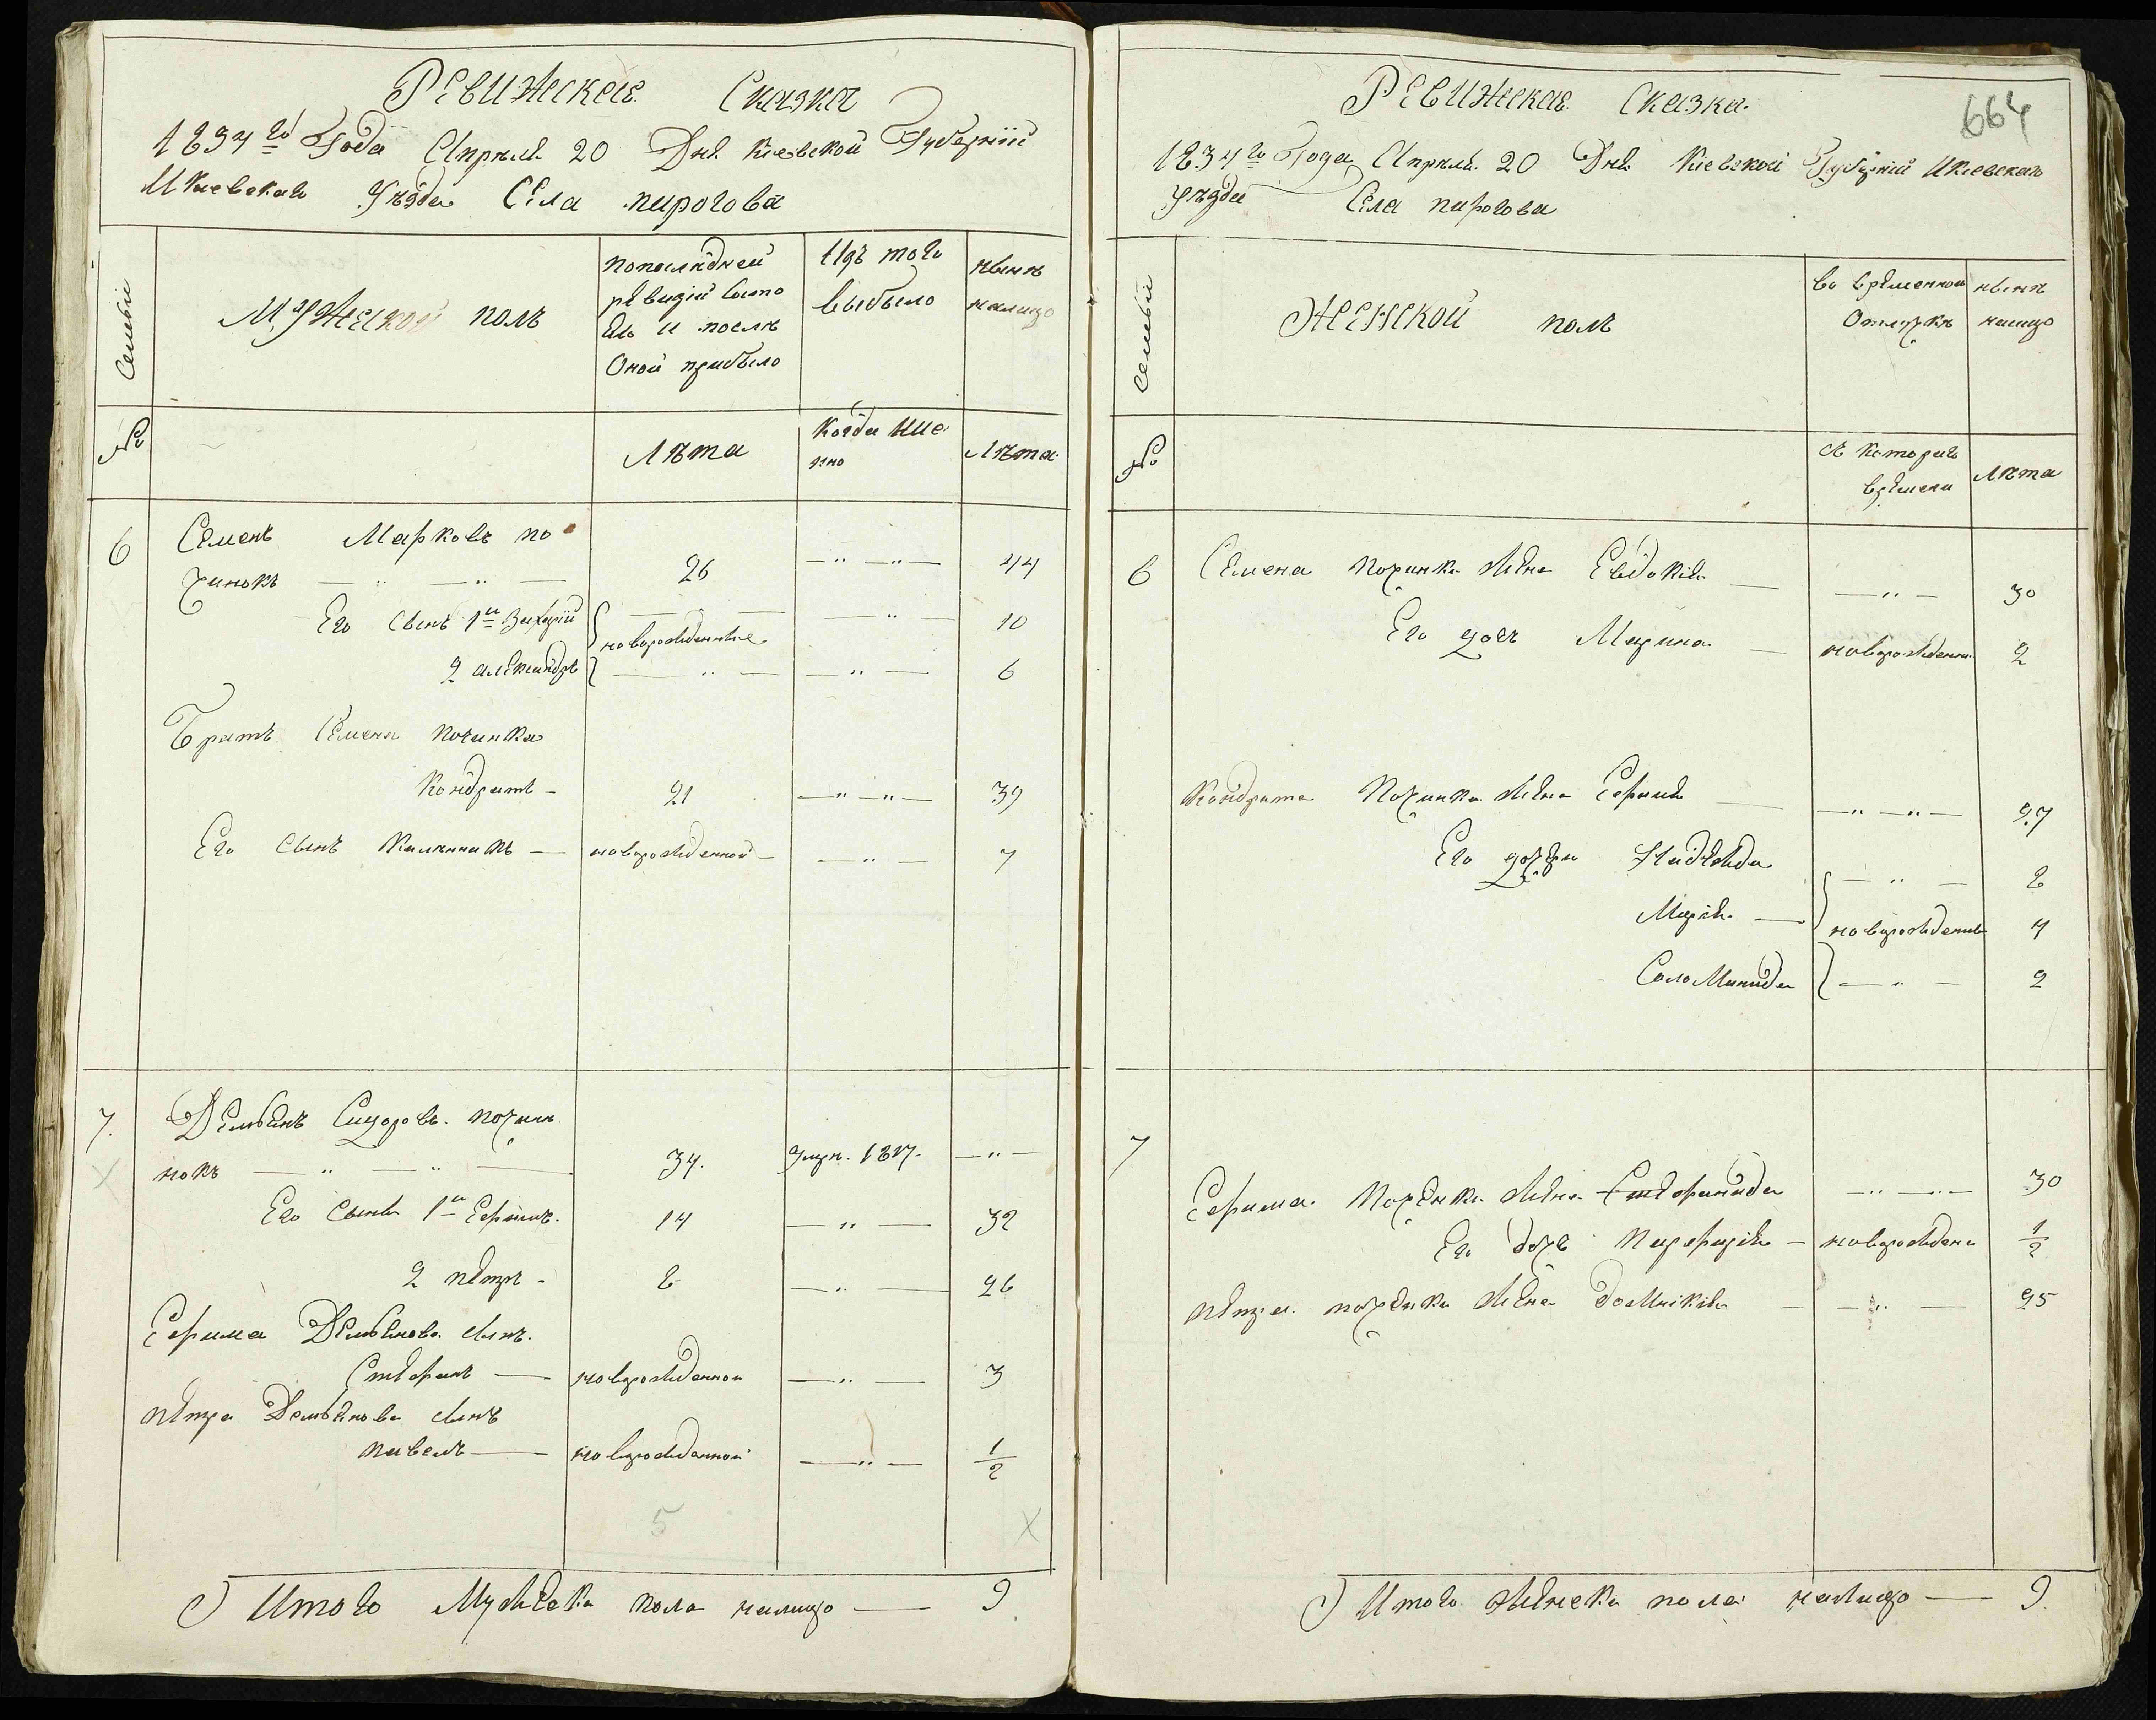 Ревижская Сказка
1834го Года Апреля 20 Дня Киевской Губернии
И Киевскаго Уезда Села пирогова
Семьи
Мужеской полъ
попоследней
ревизии состо
яло и после
Оной прибыло
Изъ того
выбыло
ныне
налицо
№
Лета
Когда име
нно
Лета
6 Семенъ Марковъ по
чинокъ — " — " — 26 — " — " — 44
Его сынъ 1й Захарий — " — — " — 10
новорожденные
2 александръ — " — — " — 6
Братъ Семена Починка
Кондратъ - 21 — " — " — 39
Его Сынъ Калиникъ — новорожденной — — " — 7
7. Демьянъ Сидоровъ почин
нокъ — " — " — 34. Умре. 1827. — " —
Его Сыны 1й Ефимъ. 14 — " — 32
2 петръ - 8 — " — 26
Ефима Демьянова сынъ.
Стефанъ — новорожденной — " — 3
петра Демьянова сынъ
павелъ — новорожденной — " — 1/2
5 X
Итого Мужеска пола налицо — 9.
664
Ревижская Сказка
1834го Года Апреля 20 Дня Киевской Губернии И Киевскаго
Уезда Села пирогова
Семьи
Женской полъ
во временной
Отлучке
ныне
налицо
№
съ котораго
времени
Лета
6 Семена починка жена Евдокия — — " — 30
Его дочь Марина — новорожденна 2
Кондрата Починка жена Ефимия — — " — " — 27
Его дочери Надежда — " — 8
Мария — новорожденные 4
Соломинида — " — 2
7
Ефима Поченка жена Стефанида — " — " — 30
Его дочь Парефирия — новорожденна 1/2
петра поченка жена Домникия — — " — 25
Итого женска пола налицо — 9.